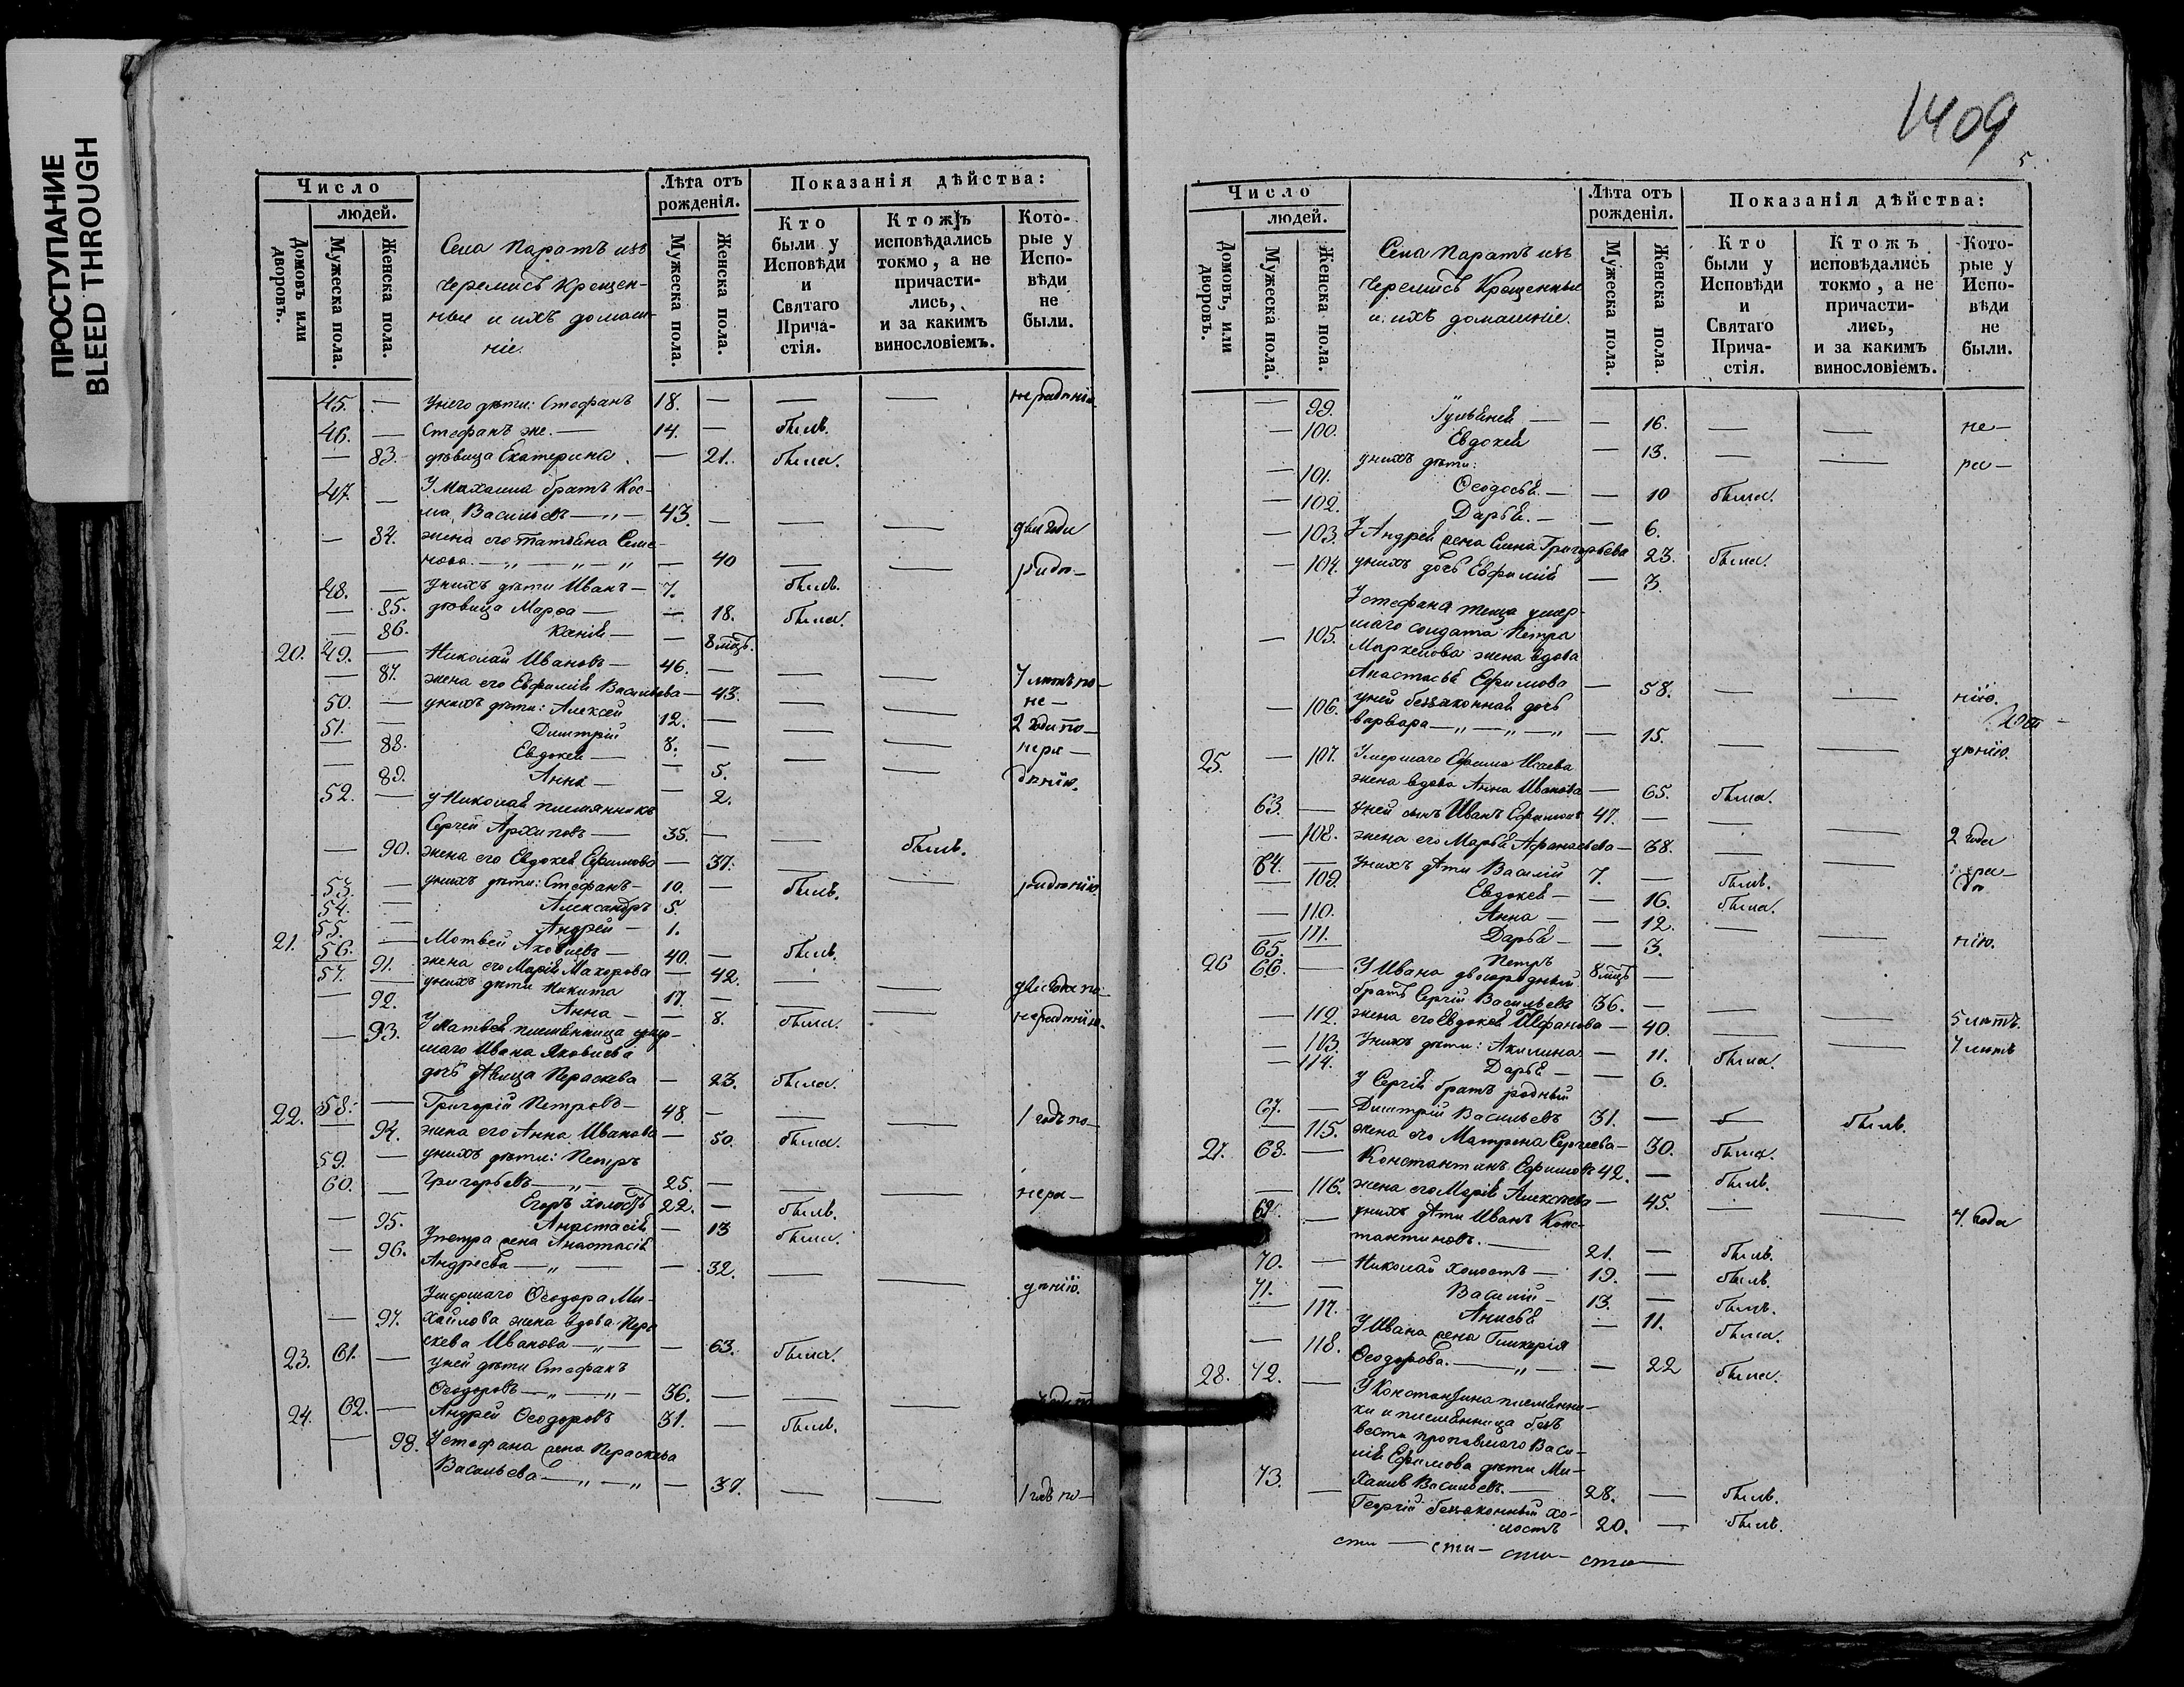 ПРОСТУПАНИЕ
BLEED THROUGH
Число
людей.
Домовъ или дворовъ.
Мужеска пола.
Женска пола.
Села Паратъ изъ
Черемисъ Крещен-
ные и ихъ домаш-
ніе.
Лѣта отъ рожденія.
Мужеска пола.
Женска пола.
Показанія дѣйства:
Кто были у Исповѣди и Святаго Прича-стія.
Ктожъ исповѣдались токмо, а не причасти-лись, и за какимъ винословіемъ.
Кото-рые у Испо-вѣди не были.
45. — у него дѣти: Стефанъ 18. — — — нерадѣнію
46. — Стефанъ же. — 14. — былъ.
— 83. дѣвица Екатерина — 21. была.
47. — У Михаила братъ Кос-
ма Васильевъ — „ — 43. — — —
— 84. жена его Татьяна Семе- два года
нова. — „ — „ — „ — 40 — —
48. — у нихъ дѣти Иванъ — 7. былъ.
— 85. дѣвица Марѳа — — 18. была.
— 86. — — 8 мцъ.
20. 49. — Николай Ивановъ — 46. — — —
— 87. жена его Евфимія Васильева — 43. — — 7 лѣтъ по —
50. — у нихъ дѣти: Алексей 12. — — — не —
51. — Димитрій 8. — — — 2 года по —
— 88. Евдокея — — 5. — — нера —
— 89. Анна — — 2. дѣнію.
52. — у Николая племянникъ
Сергей Архиповъ — 35. — — былъ.
— 90. жена его Евдокея Ефимова — 37. — —
53. — у нихъ дѣти: Стефанъ — 10. — былъ. радѣнію
54. — Александръ 5.
55. — Андрей — 1.
21. 56. — Мотвей Яковлевъ — 40. — былъ.
91. жена его Марія Макорова — 42. — —
57. — у нихъ дѣти Никита 17. — — — два года по —
— 92. Анна — — 8. была. нерадѣнію.
— 93. У Матвея племянница умер-
шаго Ивана Яковлева
дочь дѣвица Пераскева — 23. была.
22. 58. — Григорій Петровъ — 48. — — — 1 годъ по —
— 94. жена его Анна Иванова — 50. была.
59. — у нихъ дѣти: Петръ
Григорьевъ — „ — 25. — — — нера —
60. — Егоръ холостъ 22. — былъ.
— 95. Анастасія — 13 была.
— 96. У Петра жена Анастасія
Андреева — „ — — 32. — — дѣнію.
Умершаго Ѳеодора Ми-
— 97. хайлова жена вдова Пера
скева Иванова — „ — — 63. была.
23. 61. — у ней дѣти Стефанъ
Ѳеодоровъ — „ — „ — 36. — — —
24. 62. — Андрей Ѳеодоровъ 31. — былъ.
— 98. У Стефана жена Пераскева
Васильева — „ — „ — 37. — — 1 годъ по —
1409
5.
Число
людей.
Домовъ, или дворовъ.
Мужеска пола.
Женска пола.
Села Паратъ изъ
Черемисъ Крещенные
и ихъ домашніе.
Лѣта отъ рожденія.
Мужеска пола.
Женска пола.
Показанія дѣйства:
Кто были у Исповѣди и Святаго Прича-стія.
Ктожъ исповѣдались токмо, а не причасти-лись, и за какимъ винословіемъ.
Кото-рые у Испо-вѣди не были.
— 99. — — 16. — — не —
— 100. Евдокея — 13. — — ра —
у нихъ дѣти:
— 101. Ѳеодосья — — 10 была.
— 102. Дарья. — — 6.
— 103. У Андрея жена Елена Григорьева 23. была.
— 104. у нихъ дочь Евфимія — 3.
У Стефана теща умер-
шаго солдата Петра
— 105. Маркелова жена вдова
Анастасья Ефимова — 58. — — нію.
— 106. у ней беззаконная дочь
Варвара — „ — „ — „ — 15. — — дѣнію.
25. — 107. Умершаго Ефима Исаева
жена вдова Анна Иванова — 65. была.
63. — у ней сынъ Иванъ Ефимовъ 47. — — —
— 108. жена его Марья Афанасьева — 38. — — 2 года
64. — у нихъ дѣти Василій 7. — былъ.
— 109. Евдокея — — 16. была.
— 110. Анна — — 12. — — нію.
— 111. Дарья — — 3.
65. — Петръ 8 мцъ —
26 66. — У Ивана двоюродный
братъ Сергій Васильевъ 36. — — — 5 лѣтъ.
— 112. жена его Евдокея — 40. — — 7 лѣтъ
— 113. у нихъ дѣти: Акилина — 11. была.
— 114. Дарья — — 6.
У Сергія братъ родный
67. — Димитрій Васильевъ 31. — былъ.
— 115. жена его Матрена Сергеева — 30. была.
27. 68. — Константинъ Ефимовъ 42. — былъ.
— 116. жена его Марія Алексеева — 45. — — 4 года
69. — у нихъ дѣти Иванъ Конс-
тантиновъ. — 21. — былъ.
70. — Николай холостъ — 19. — былъ.
71. — Василій — 13. — былъ.
— 117. Анисья — 11. была.
— 118. У Ивана жена Гликерія
Ѳеодорова. — „ — — 22 была.
28. 72. — У Константина племянни-
ки и племянница безъ
вести пропавшаго Васи-
лія Ефимова дѣти Ми-
хаилъ Васильевъ. — 28. — былъ.
73. — Георгій беззаконный хо-
лостъ 20. — былъ.
сти — сти — сти — сти —